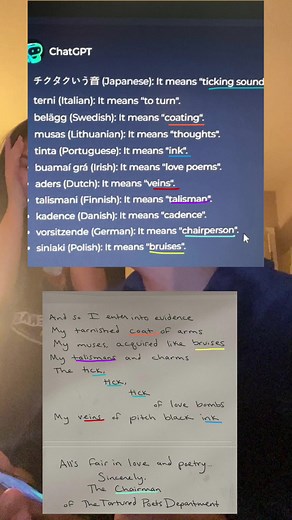 ChatGPT
チクタクいう音 (Japanese): It means "ticking sound
terni (Italian): It means "to turn".
belägg (Swedish): It means "coating".
musas (Lithuanian): It means "thoughts".
tinta (Portuguese): It means "ink".
buamaí grá (Irish): It means "love poems".
aders (Dutch): It means "veins".
talismani (Finnish): It means "talisman".
kadence (Danish): It means "cadence".
vorsitzende (German): It means "chairperson".
siniaki (Polish): It means "bruises".
And so I enter into evidence
My tarnished coat of arms
My muses, acquired like bruises
My talismans and charms
The tick,
tick,
tick
of love bombs
My veins of pitch black ink
All's fair in love and poetry...
Sincerely,
The Chairman
of The Tortured Poets Department